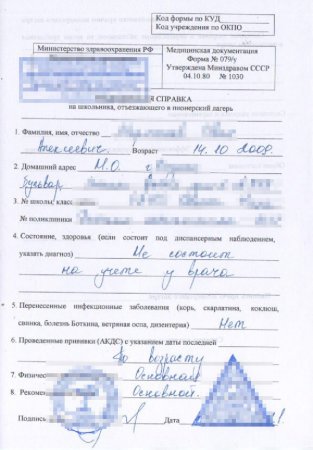 Код формы по КУД
Код учреждения по ОКПО
Министерство здравоохранения РФ
Медицинская документация
Форма № 079/у
Утверждена Минздравом СССР
04.10.80 № 1030
СПРАВКА
на школьника, отъезжающего в пионерский лагерь
1. Фамилия, имя, отчество
Алексеевич. Возраст 14.10 2008
2. Домашний адрес М.О. г.
бульвар
3. № школы, класс
№ поликлиники
4. Состояние, здоровья (если состоит под диспансерным наблюдением,
указать диагноз) Не состоит
на учете у врача
5. Перенесенные инфекционные заболевания (корь, скарлатина, коклюш,
свинка, болезнь Боткина, ветряная оспа, дизентерия) Нет
6. Проведенные прививки (АКДС) с указанием даты последней
по возрасту
7. Физичес Основная
8. Рекомен Основной.
Подпись Дата